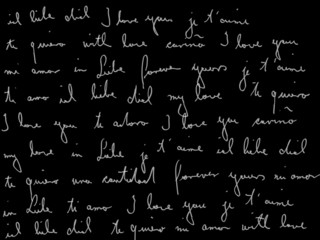 iel liebe dial I love you je t'aime
te quiero with love cariño I love you
mi amor in Liebe forever yours je t'aime
ti amo iel liebe dial my love te quiero
I love you te adoro I love you cariño
my love in Liebe je t'aime iel liebe dial
te quiero una cantidad forever yours mi amor
in Liebe ti amo I love you je t'aime
iel liebe dial te quiero mi amor with love